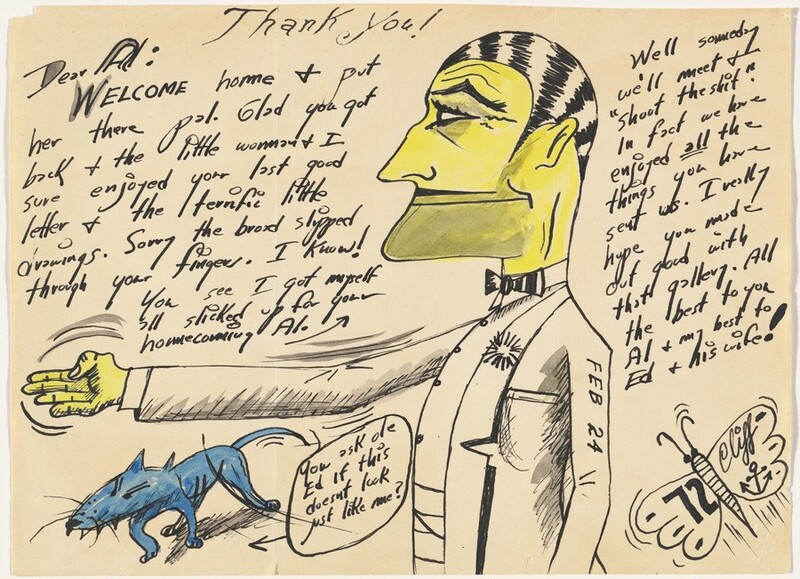 Thank you!
Dear Al:
WELCOME home & put
her there pal. Glad you got
back & the little woman & I
sure enjoyed your last good
letter & the terrific little
drawings. Sorry the broad slipped
through your fingers. I know!
You see I got myself
all slicked up for your
homecomming Al.
Well someday
we'll meet &
"shoot the shit"
In fact we have
enjoyed all the
things you have
sent us. I really
hope you made
out good with
that gallery. All
the best to you
Al & my best to
Ed & his wife!
FEB 24
You ask ole
Ed if this
doesnt look
just like me?
Cliff-
72